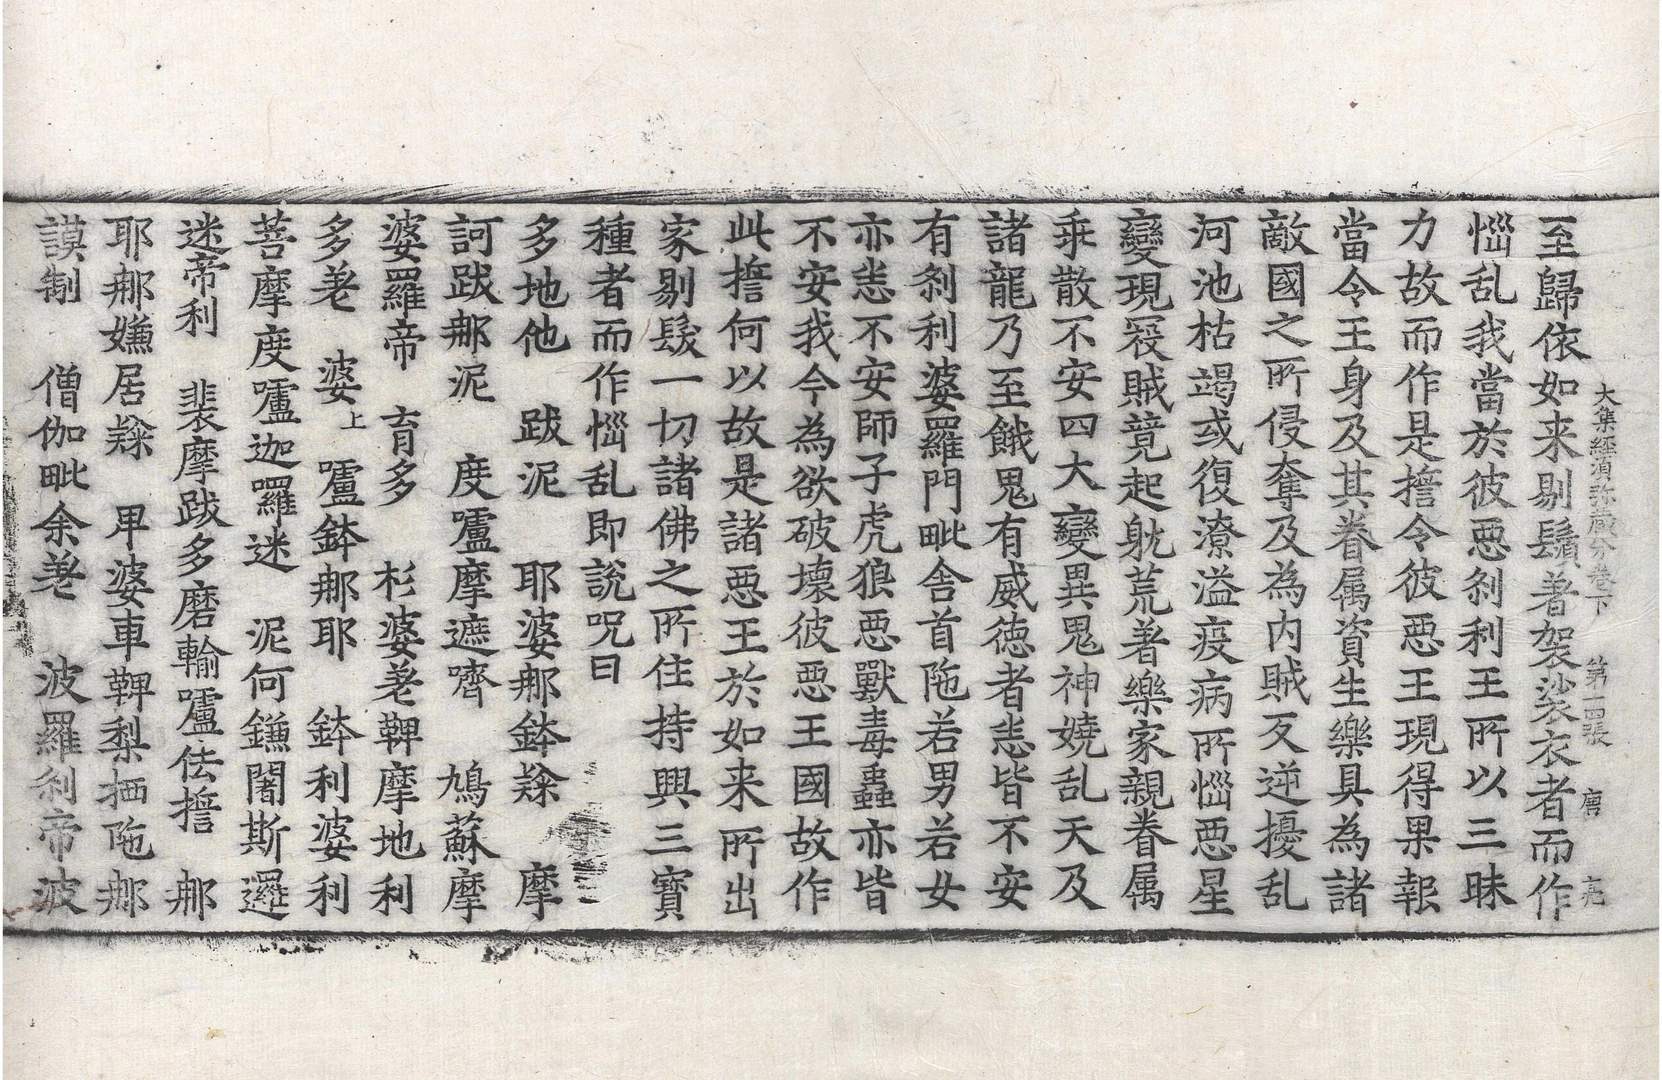 大集經須弥藏分卷下 第一四張 唐 亮
至歸依如来剔鬚著袈裟衣者而作
惱乱我當於彼惡剎利王所以三昧
力故而作是擔令彼惡王現得果報
當令王身及其眷属資生樂具為諸
敵國之所侵奪及為内賊反逆擾乱
河池枯竭或復潦溢疫病所惱惡星
變現寇賊競起躭荒著樂家親眷属
乖散不安四大變異鬼神嬈乱天及
諸龍乃至餓鬼有威徳者恚皆不安
有剎利婆羅門毗舍首陁若男若女
亦恚不安師子虎狼惡獸毒蟲亦皆
不安我今為欲破壞彼惡王國故作
此擔何以故是諸惡王於如来所出
家剔髮一切諸佛之所住持興三寶
種者而作惱乱即說呪曰
多地他 跋泥 耶婆那鉢㸇 摩
訶跋那泥 度嚧摩遮嚌 鳩蘇摩
婆羅帝 育多 杉婆差鞞摩地利
多差 婆上 嚧鉢那耶 鉢利婆利
菩摩度嚧迦囉迷 泥何鎌闍斯邏
迷帝利 裴摩跋多磨輸嚧佉擔 那
耶那嫌居㸇 毘婆車鞞梨捂陁那
謨制 僧伽毗余差 波羅利帝波